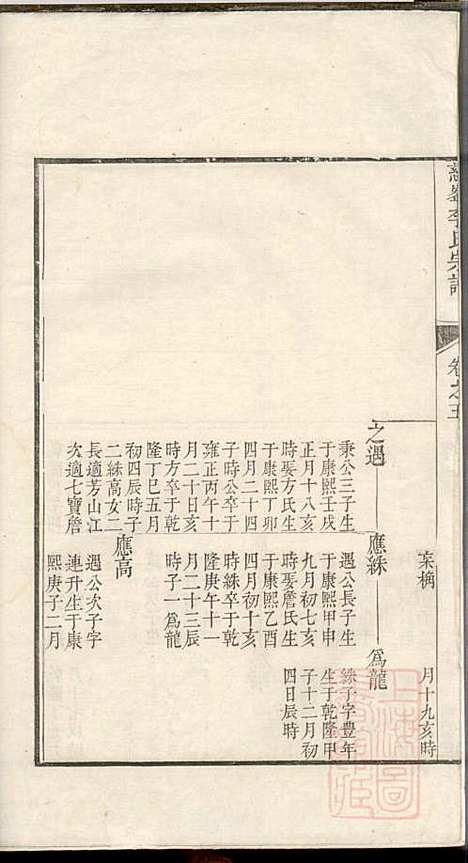 李氏宗譜
卷之五
月十九亥時
之遇
應絲
爲龍
秉公三子生
于康熙壬戌
正月十八亥
時娶方氏生
于康熙丁卯
四月二十四
子時公卒于
雍正丙午十
月二十日亥
時方卒于乾
隆丁巳五月
初四辰時子
二絲高女二
長適芳山江
次適七寶詹
遇公長子生
于康熙甲申
九月初七亥
時娶詹氏生
于康熙乙酉
四月初十亥
時絲卒于乾
隆庚午十一
月二十三辰
時子一爲龍
絲子字豊年
生于乾隆甲
子十二月初
四日辰時
應高
遇公次子字
連升生于康
熙庚子二月
上海圖